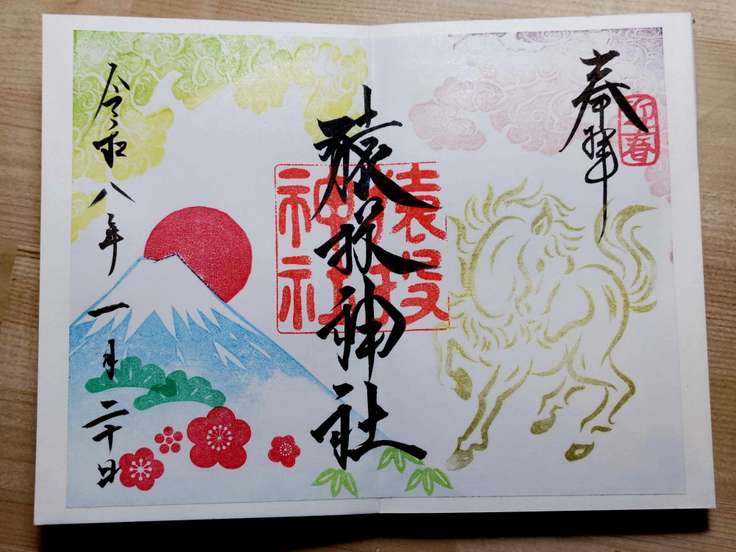 奉拝
迎春
猿投神社
猿投
神社
令和八年一月二十日